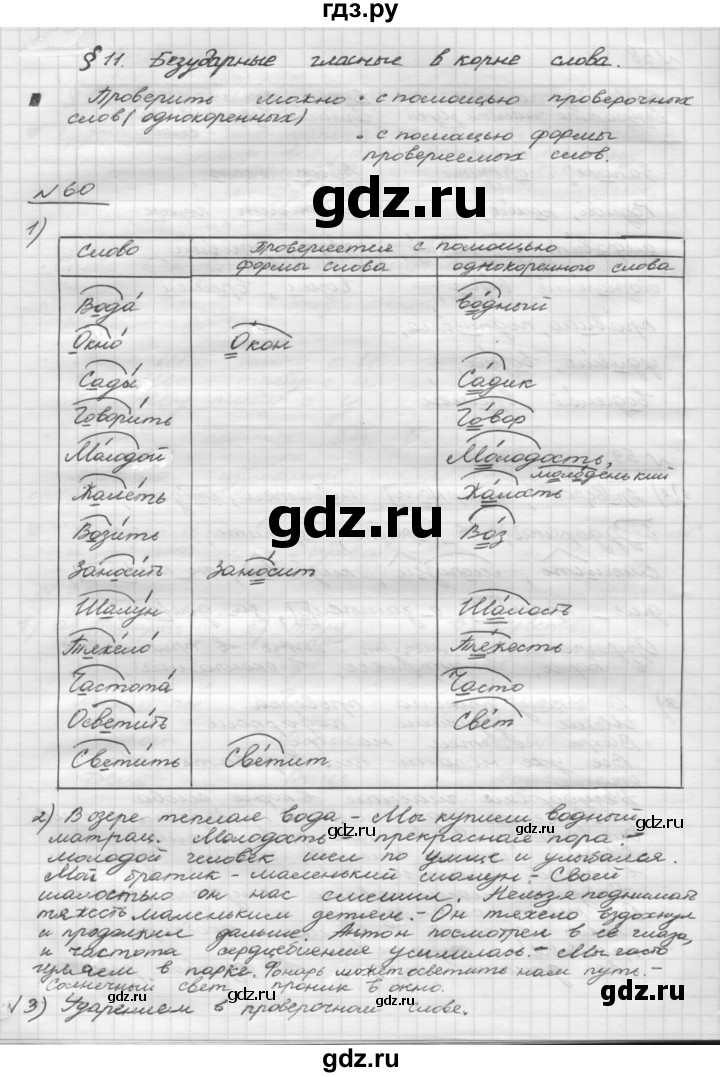 гдз.ру
§ 11. Безударные гласные в корне слова.
Проверить можно • с помощью проверочных
слов (однокоренных)
• с помощью формы
проверяемых слов.
gdz.ru
№ 60
1)
Слово Проверяется с помощью
формы слова однокоренного слова
Вода́ во́дный
Окно́ Окон
Сады́ Са́дик
Говори́ть Го́вор
Мо́лодой Мо́лодость,
моло́денький
Жале́ть Жа́лость
Вози́ть Во́з
gdz.ru
Заноси́ть Зано́сит
Шалу́н Ша́лость
Тяжело́ Тя́жесть
Частота́ Ча́сто
Освети́ть Све́т
Свети́ть Све́тит
2) В озере теплая вода. – Мы купили водный
матрац. Молодость – прекрасная пора. –
Молодой человек шел по улице и улыбался.
Мой братик – маленький шалун. – Своей
шалостью он нас смешил. Нельзя поднимать
тяжесть маленьким детям. – Он тяжело вздохнул
и продолжил дальше. Антон посмотрел в её глаза,
и частота сердцебиения усилилась. – Мы часто
гуляем в парке. Фонарь может осветить нам путь. –
Солнечный свет проник в окно.
gdz.ru
3) Ударением в проверочном слове.
gdz.ru